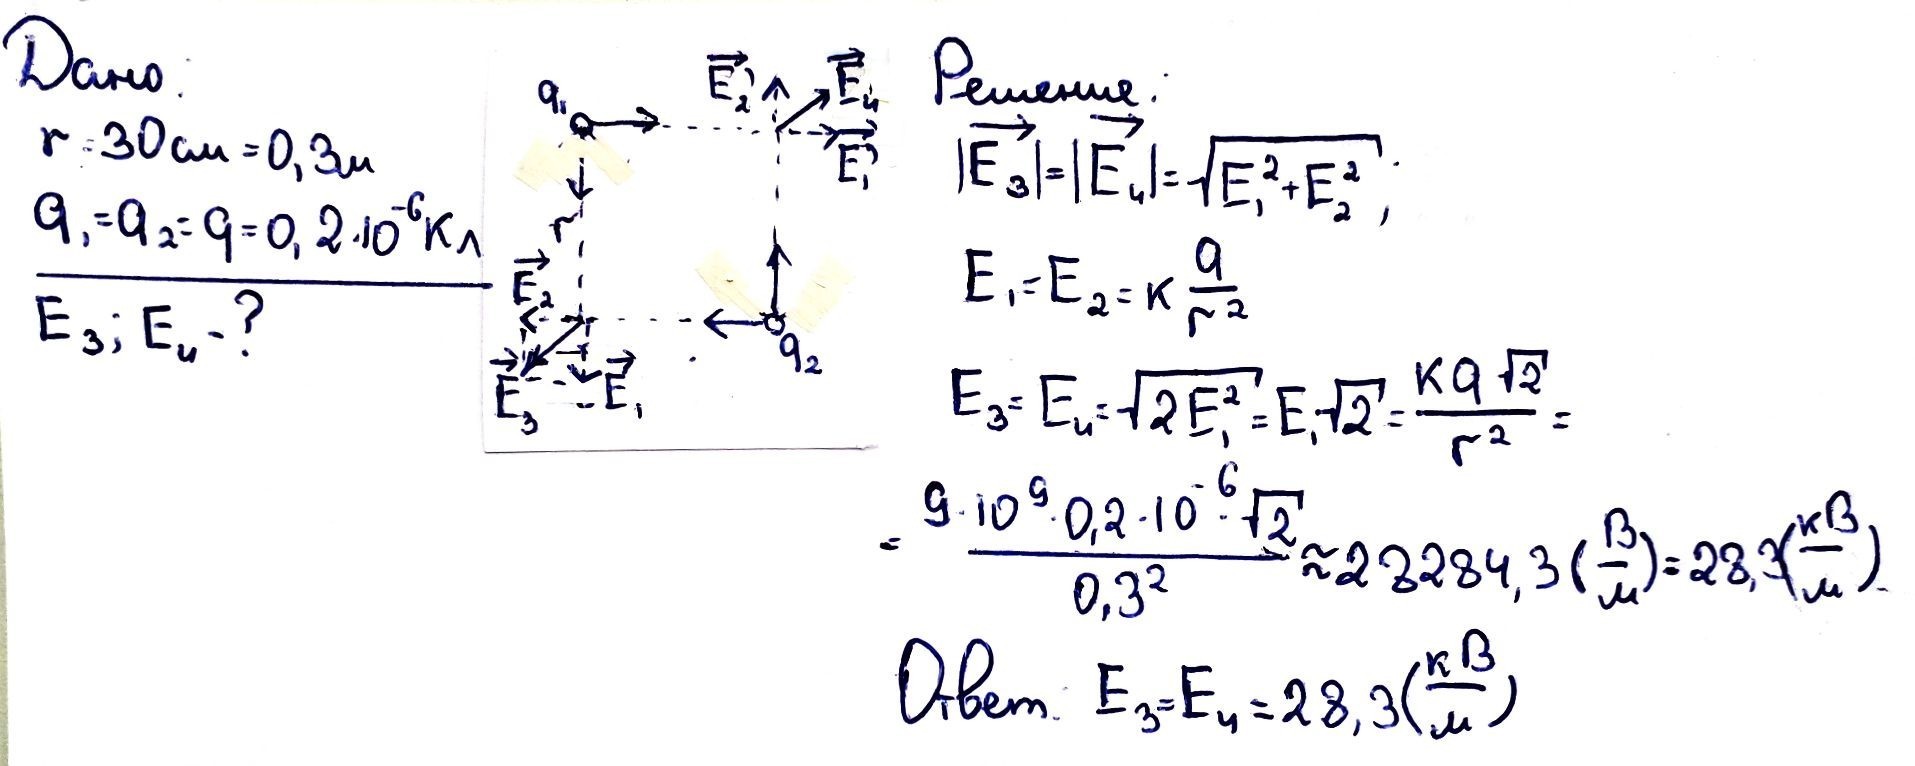 Дано:
r = 30 см = 0,3 м
q₁ = q₂ = q = 0,2·10⁻⁶ Кл
E₃; E₄ - ?
q₁
E₂'
E₄
E₁'
r
E₂
q₂
E₃
E₁
Решение:
|E₃| = |E₄| = √(E₁² + E₂²);
E₁ = E₂ = к q/r²
E₃ = E₄ = √(2E₁²) = E₁√2 = кq√2/r² =
= 9·10⁹·0,2·10⁻⁶·√2/0,3² ≈ 28284,3 (В/м) = 28,3 (кВ/м)
Ответ: E₃ = E₄ = 28,3 (кВ/м)